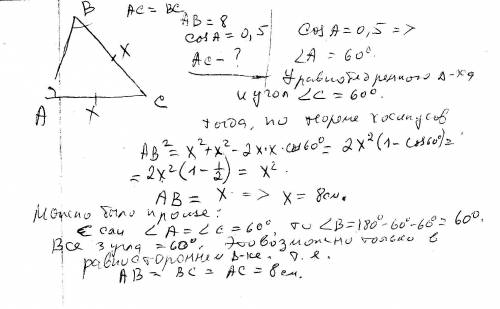 B
AC = BC.
AB = 8
cos A = 0,5
AC - ?
A
C
x
x
cos A = 0,5 =>
∠A = 60°.
У равнобедренного Δ-ка
и угол ∠C = 60°.
тогда, по теореме косинусов
AB² = x² + x² - 2x·x·cos60° = 2x²(1 - cos60°) =
= 2x²(1 - 1/2) = x².
AB = x => x = 8 см.
Можно было проще:
Если ∠A = ∠C = 60°, то ∠B = 180° - 60 - 60° = 60°.
Все 3 угла = 60°. Это возможно только в
равностороннем Δ-ке. т.е.
AB = BC = AC = 8 см.